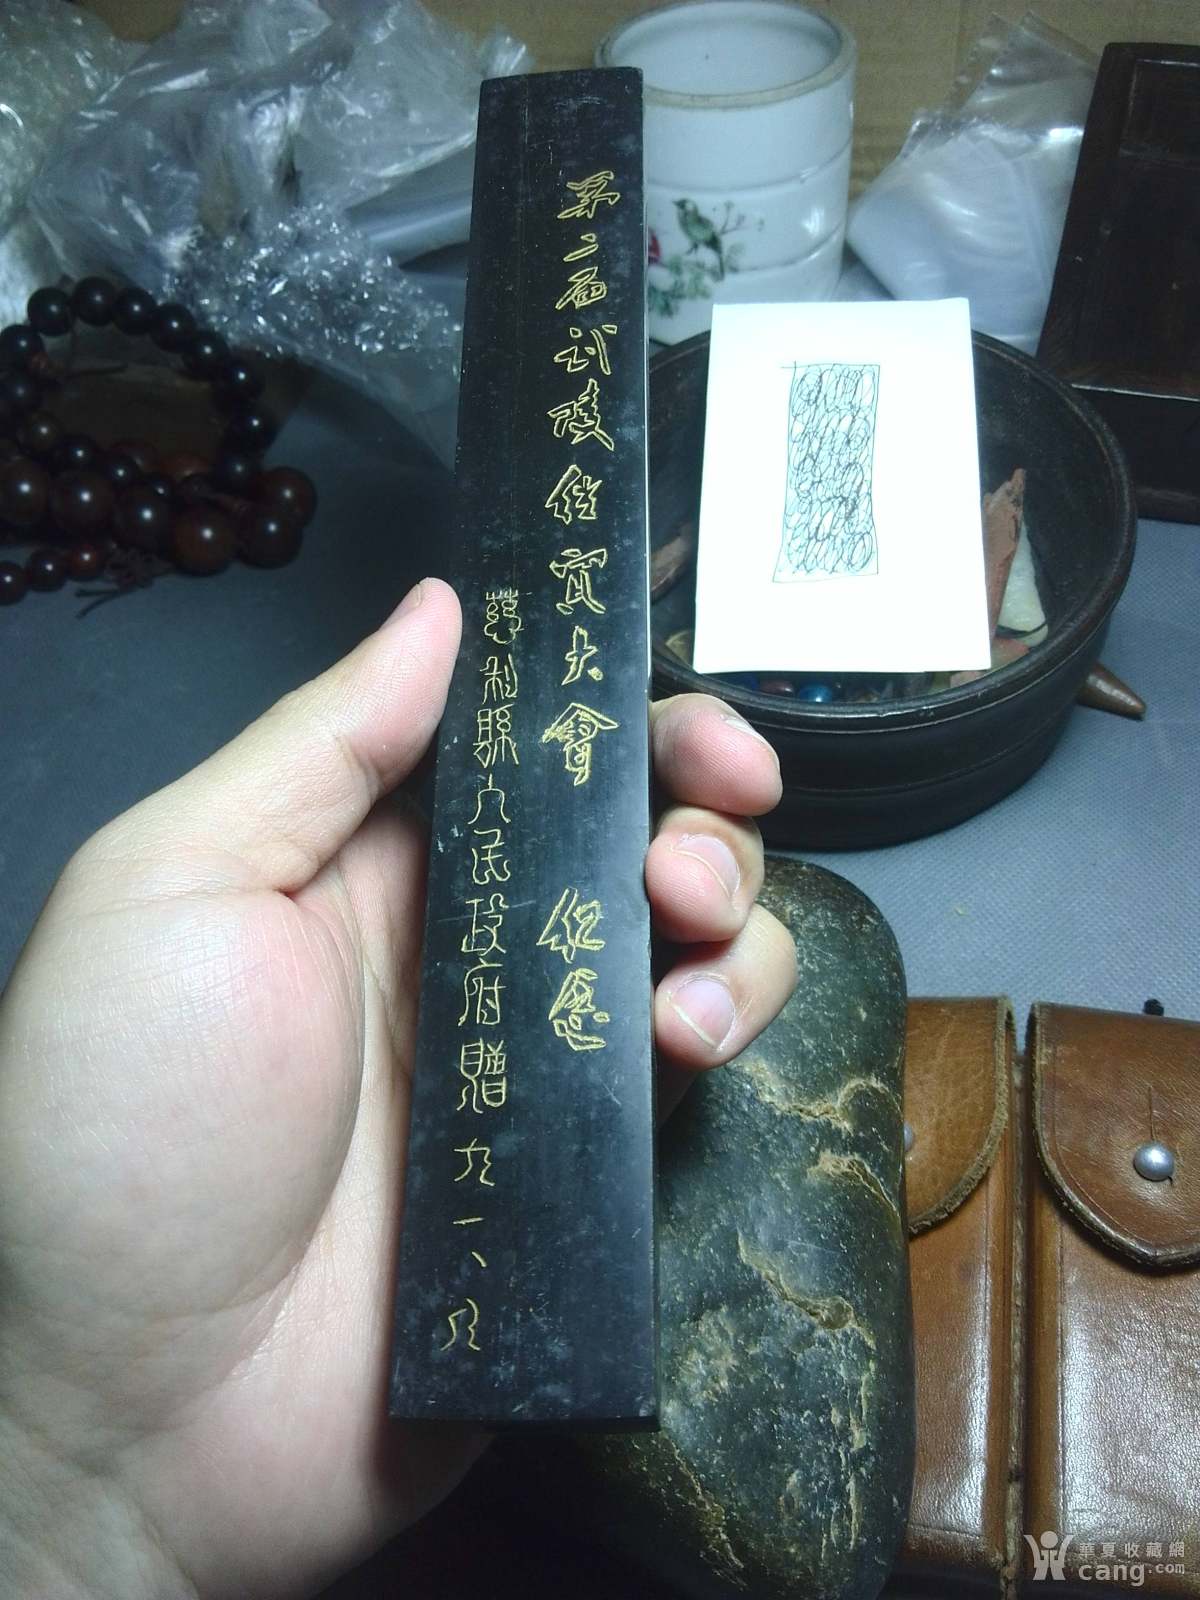 第二届武陵大會 纪念
慈利縣人民政府贈 九一、
華夏收藏網
cang.com